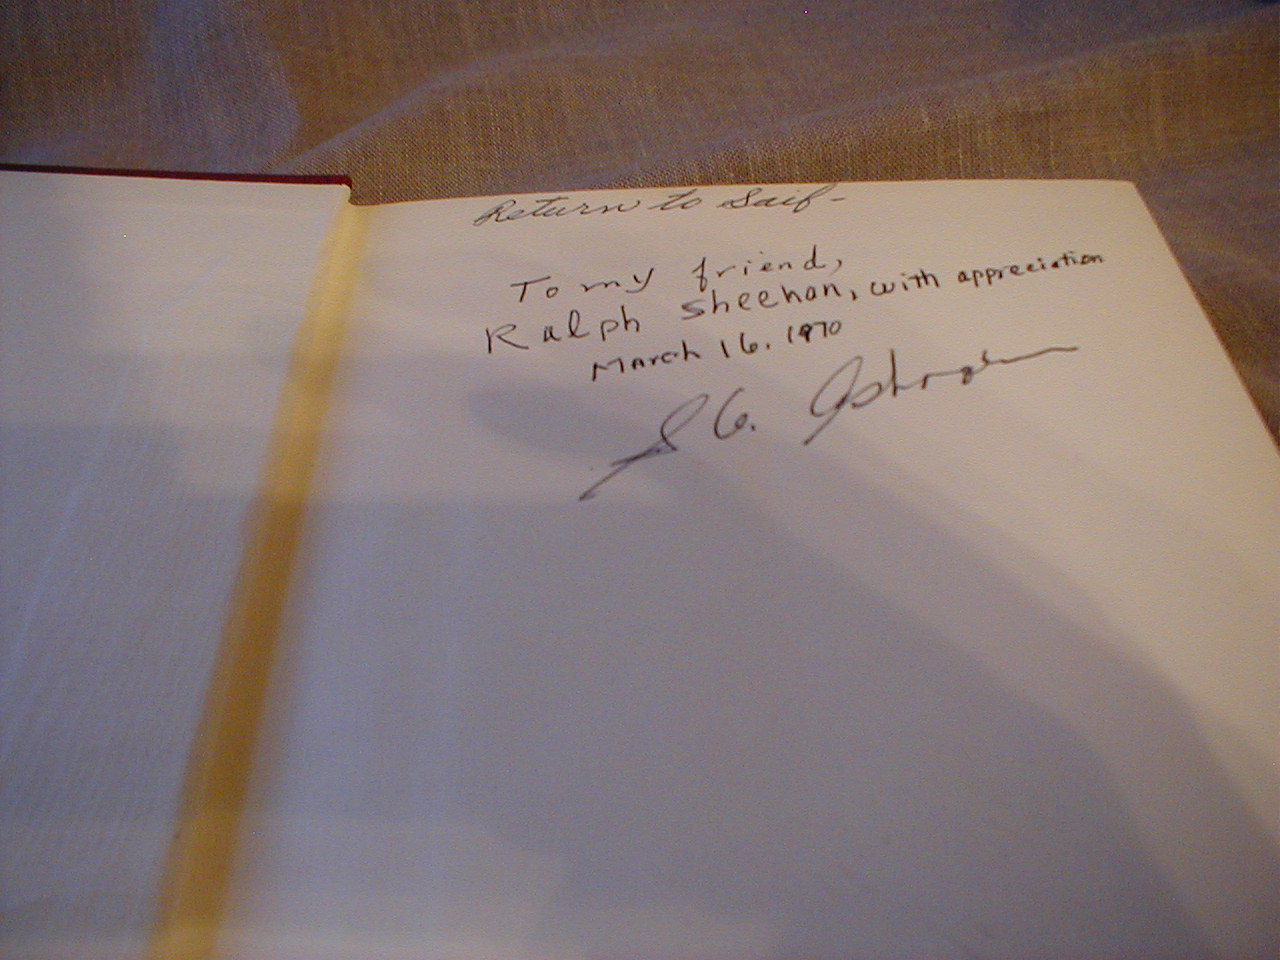 Return to Saif-
To my friend,
Ralph Sheehan, with appreciation
March 16, 1970
S G.